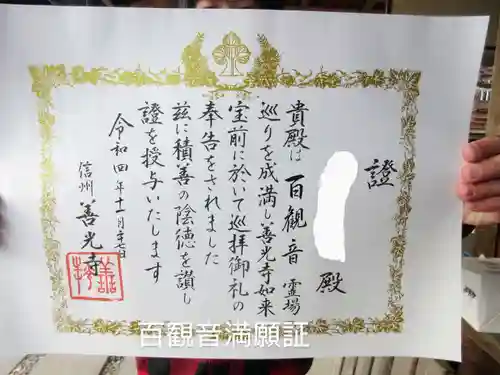 證
殿
貴殿は百觀音霊場
巡りを成満し善光寺如来
宝前に於いて巡拝御礼の
奉告をされました
茲に積善の陰徳を讃し
證を授与いたします
令和四年十一月
信州 善光寺
百観音満願証